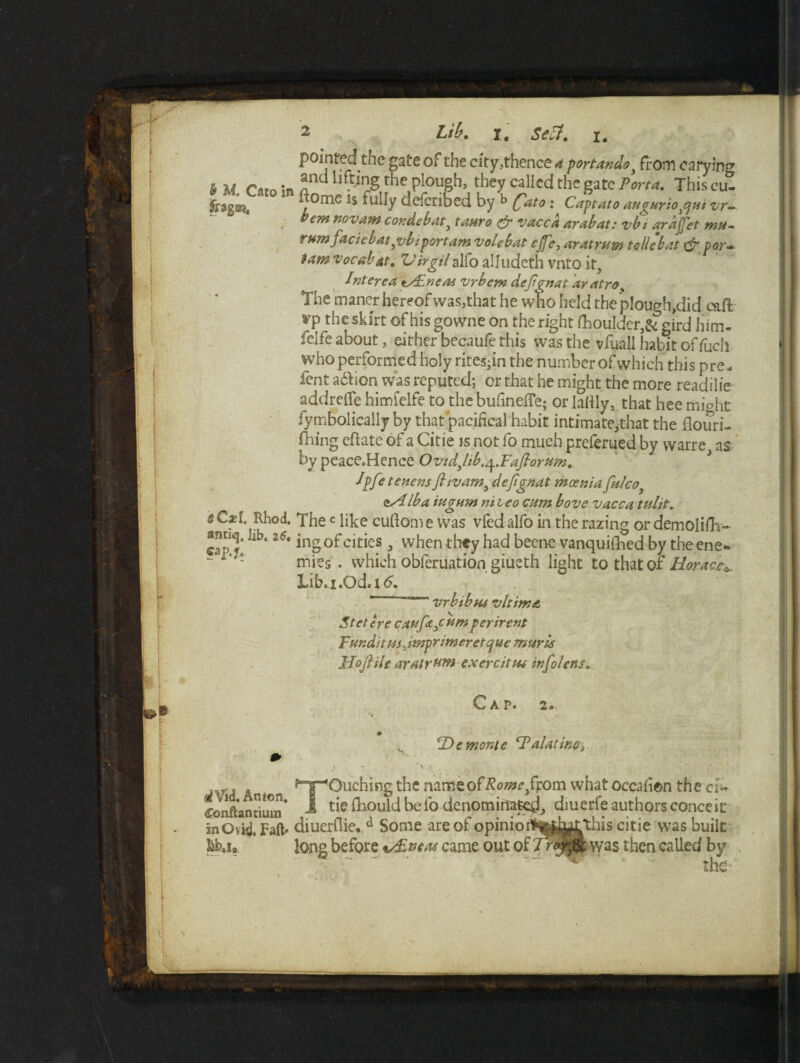 2 Lib. 1. Sect. 1.
pointed the gate of the city,thence a portando, from carying
and lifting the plough, they called the gate Porta. This cu-
b M. Cato in fragm.
stome is fully described by b Cato: Captato augurio,qui vr-
bem novam condebat, tauro & vaccâ arabat: vbi arâsset mu-
rum faciebat,vbi portam volebat esse, aratrum tollebat & por-
tam vocabat. Virgil also alludeth vnto it,
Interea Æneas vrbem designat aratro,
The maner hereof was,that he who held the plough,did cast
vp the skirt of his gowne on the right shoulder,& gird him-
selfe about, either because this was the vsuall habit of such
who performed holy rites;in the number of which this pre-
sent action was reputed; or that he might the more readilie
addresse himselfe to the businesse; or lastly, that hee might
symbolically by that pacifical habit intimate,that the flouri-
shing estate of a Citie is not so much preserued by warre, as
by peace.Hence Ovid,lib.4.Fastorum.
Ipse tenens stivam, designat mœnia sulco,
Alba iugum niueo cum bove vacca tulit.
c Cæl. Rhod. antiq. lib. 26. cap.5.
The c like custome was vsed also in the razing or demolish-
ing of cities, when they had beene vanquished by the ene-
mies. which obseruation giueth light to that of Horace.
Lib.1.Od.16.
vrbibus vltimæ
Stetêre causæ,cum perirent
Funditus,imprimeretque muris
Hostile aratrum exercitus insolens.
CAP. 2.
De monte Palatino,
d Vid. Anton. Constantium in Ovid. Fast. lib.1.
TOuching the name of Rome,from what occasion the ci-
tie should be so denominated, diuerse authors conceit
diuerslie. d Some are of opinion that this citie was built
long before Æneas came out of Troy,& was then called by
the